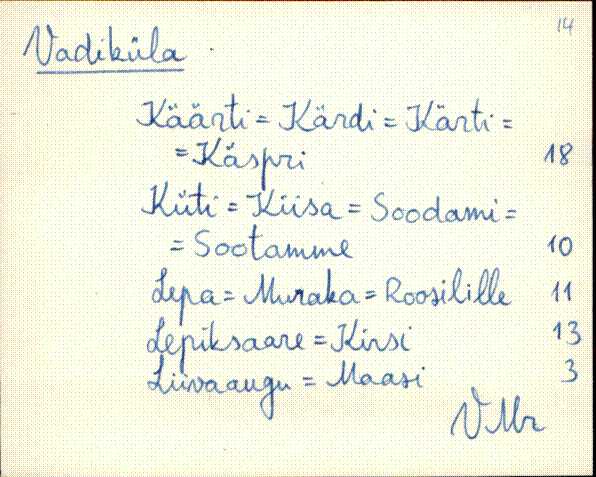 14
Vadiküla
Käärti = Kärdi = Kärti =
= Käspri 18
Küti = Kiisa = Soodami =
= Sootamme 10
Lepa = Muraka = Roosilille 11
Lepiksaare = Kirsi 13
Liivaaugu = Maasi 3
VMr